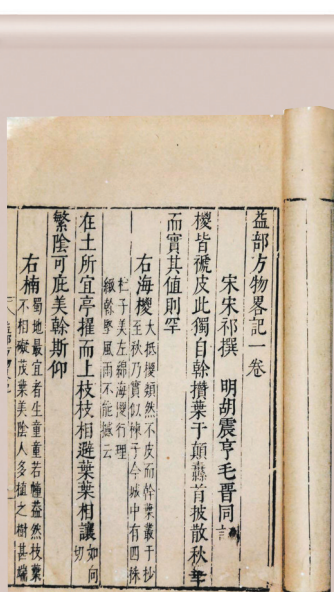 益部方物畧記一卷
宋宋祁撰　明胡震亨毛晉同
椶皆褫皮此獨自幹攢葉于顛蘤首披散秋華
而實其值則罕
右海椶
大抵椶類然不皮而幹葉叢于抄
至秋乃實似楝子今城中有四株
在土所宜亭擢而上枝枝相避葉葉相讓
如何
切
繁陰可庇美幹斯仰
右楠
蜀地最宜者生童童若幢蓋然枝葉
不相礙茂葉美陰人多植之樹甚端